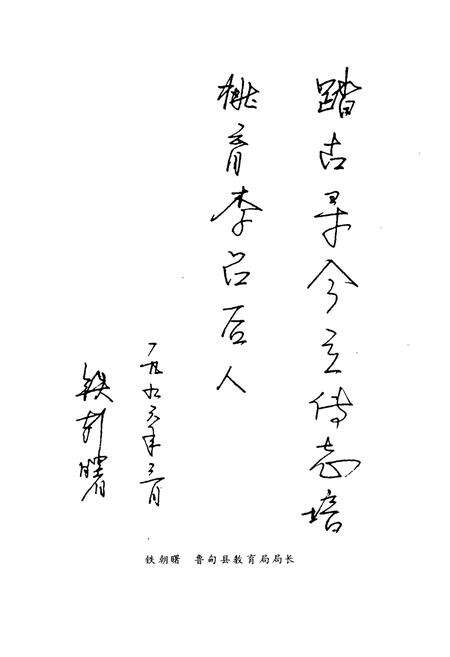 踏古寻今立传志培
桃育李后人
一九九六年三月
铁朝曙
铁朝曙 鲁甸县教育局局长